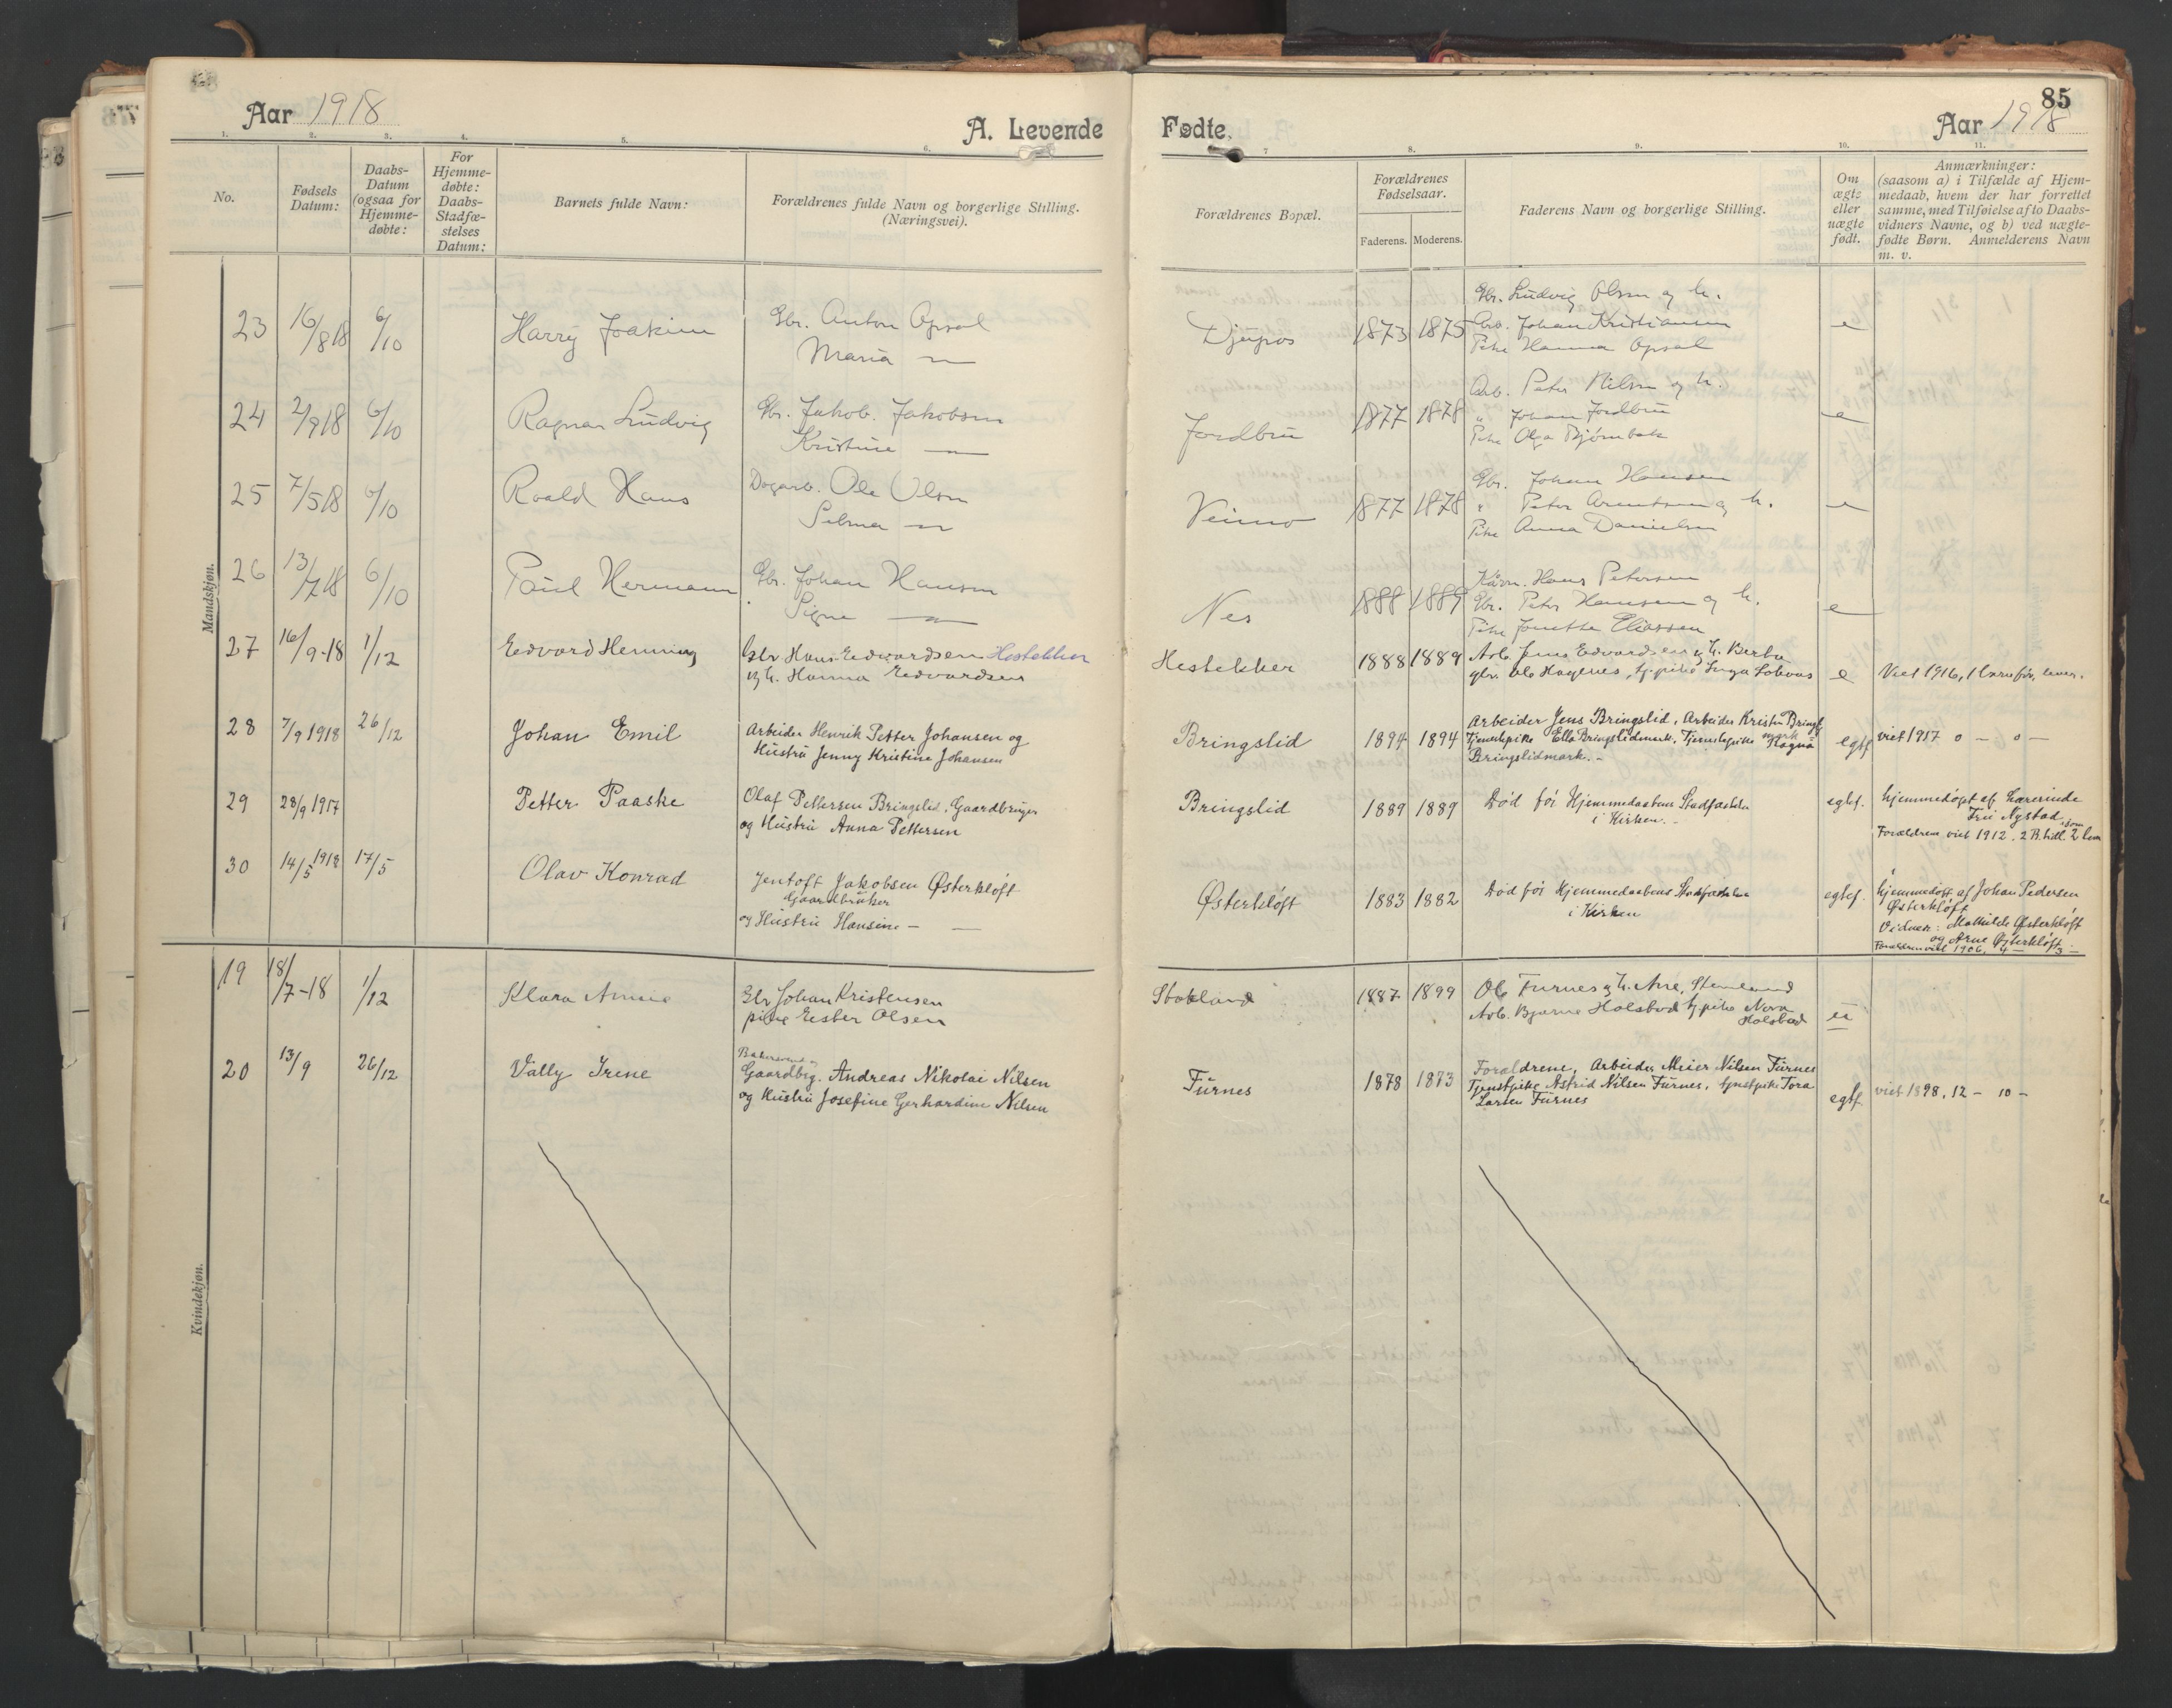 85
Aar 1918
A. Levende
Fødte.
Aar 1918
1. 2. 3. 4. 5. 6. 7 8. 9. 10. 11.
No.
Fødsels
Datum:
Daabs-
Datum
(ogsaa for
Hjemme-
døbte:
For
Hjemme-
døbte:
Daabs-
Stadfæ-
stelses
Datum:
Barnets fulde Navn:
Forældrenes fulde Navn og borgerlige Stilling.
(Næringsvei).
Forældrenes Bopæl.
Forældrenes
Fødselsaar.
Faderens. Moderens.
Faderens Navn og borgerlige Stilling.
Om
ægte
eller
uægte
født.
Anmærkninger:
(saasom a) i Tilfælde af Hjem-
medaab, hvem der har forrettet
samme, med Tilføielse af to Daabs-
vidners Navne, og b) ved uægte-
fødte Børn. Anmelderens Navn
m. v.
Mandskjøn.
23 16/8 18 6/10 Harry Joakim
Gbr. Anton Opsal
Maria —
Djupos 1873 1875
Gbr. Ludvig Olsen og h.
Arb. Johan Kristiansen
Pike Hanna Opsal
e
24 2/9 18 6/10 Ragnar Ludvig
Gbr. Jakob Jakobsen
Kristine —
Jordbru 1877 1878
Arb. Peter Nilsen og h.
" Johan Jordbru
Pike Olga Bjørnbak
e
25 7/5 18 6/10 Roald Hans
Dagarb. Ole Olsen
Selma —
Veimo 1877 1878
Gbr. Johan Hansen
" Peter Arentsen og h.
Pike Anna Danielsen
e
26 13/7 18 6/10 Paul Hermann
Gbr. Johan Hansen
Signe —
Nes 1888 1889
Hans Petersen
Gbr. Peter Hansen og h.
Pike Jonette Eliassen
e
27 16/9-18 1/12 Edvard Henning
Gbr Hans Edvardsen Hestekker
og h. Hanna Edvardsen
Hestekker 1888 1889
Arb. Jens Edvardsen og h. Berta
gbr. Ole Hagenes, tj.pike Inga
e
Viet 1916, 1 barn før, lever.
28 7/9 1918 26/12 Johan Emil
Arbeider Henrik Petter Johansen og
Hustru Jenny Kristine Johansen
Bringslid 1894 1894
Arbeider Jens Bringslid, Arbeider Kristen Bringsl.
mark
Tjenestepike Ella Bringslidmark, Tjenestepike Ragna
Bringslidmark. -
egtf
viet 1917 0 — 0 —
29 28/9 1917 Petter Paaske
Olaf Pettersen Bringslid, Gaardbruger
og Hustru Anna Pettersen
Bringslid 1889 1889
Død før Hjemmedaabens Stadfæstelse
i Kirken. -
egtf.
hjemmedøpt af Lærerinde
Fru Nystad
Forældrene viet 1912. 2 B. tidl. 2 lever
30 14/5 1918 17/5 Olav Konrad
Jentoft Jakobsen Østerkløft
Gaardbruker
og Hustru Hansine — —
Østerkløft 1883 1882
Død før Hjemmedaabens Stadfæstelse
i Kirken
egtef.
hjemmedøpt af Johan Pedersen
Østerkløft
Vidner: Mathilde Østerkløft
og Arne Østerkløft
Forældrene viet 1906, 4 — 3 —
Kvindekjøn.
19 18/7-18 1/12 Klara Amsie
Gbr Johan Kristensen
pike Ester Olsen
Stokland 1887 1899
Ole Furnes og h. Ane,
Arb. Bjarne Holsbad tj.pike Nora
Holsbad
u
20 13/9 26/12 Vally Irene
Gaardbrg. Andreas Nikolai Nilsen
og Hustru Josefine Gerhardine Nilsen
Furnes 1878 1873
Forældrene, Arbeider Meier Nilsen Furnes
Tjenstpike Astrid Nilsen Furnes, tjenstpike Tora
Larsen Furnes
egtf
viet 1898, 12 — 10 —